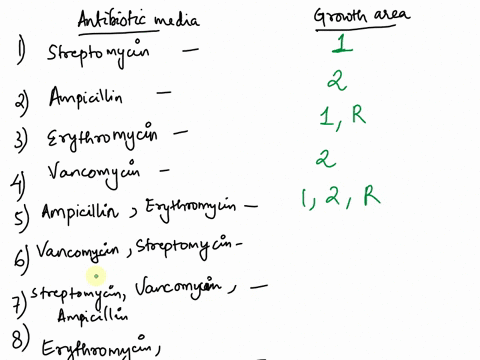 Antibiotic media Growth area
1) Streptomycin — 1
2) Ampicillin — 2
3) Erythromycin — 1, R
4) Vancomycin — 2
5) Ampicillin, Erythromycin — 1, 2, R
6) Vancomycin, Streptomycin -
7) Streptomycin, Vancomycin, —
Ampicillin
8) Erythromycin,